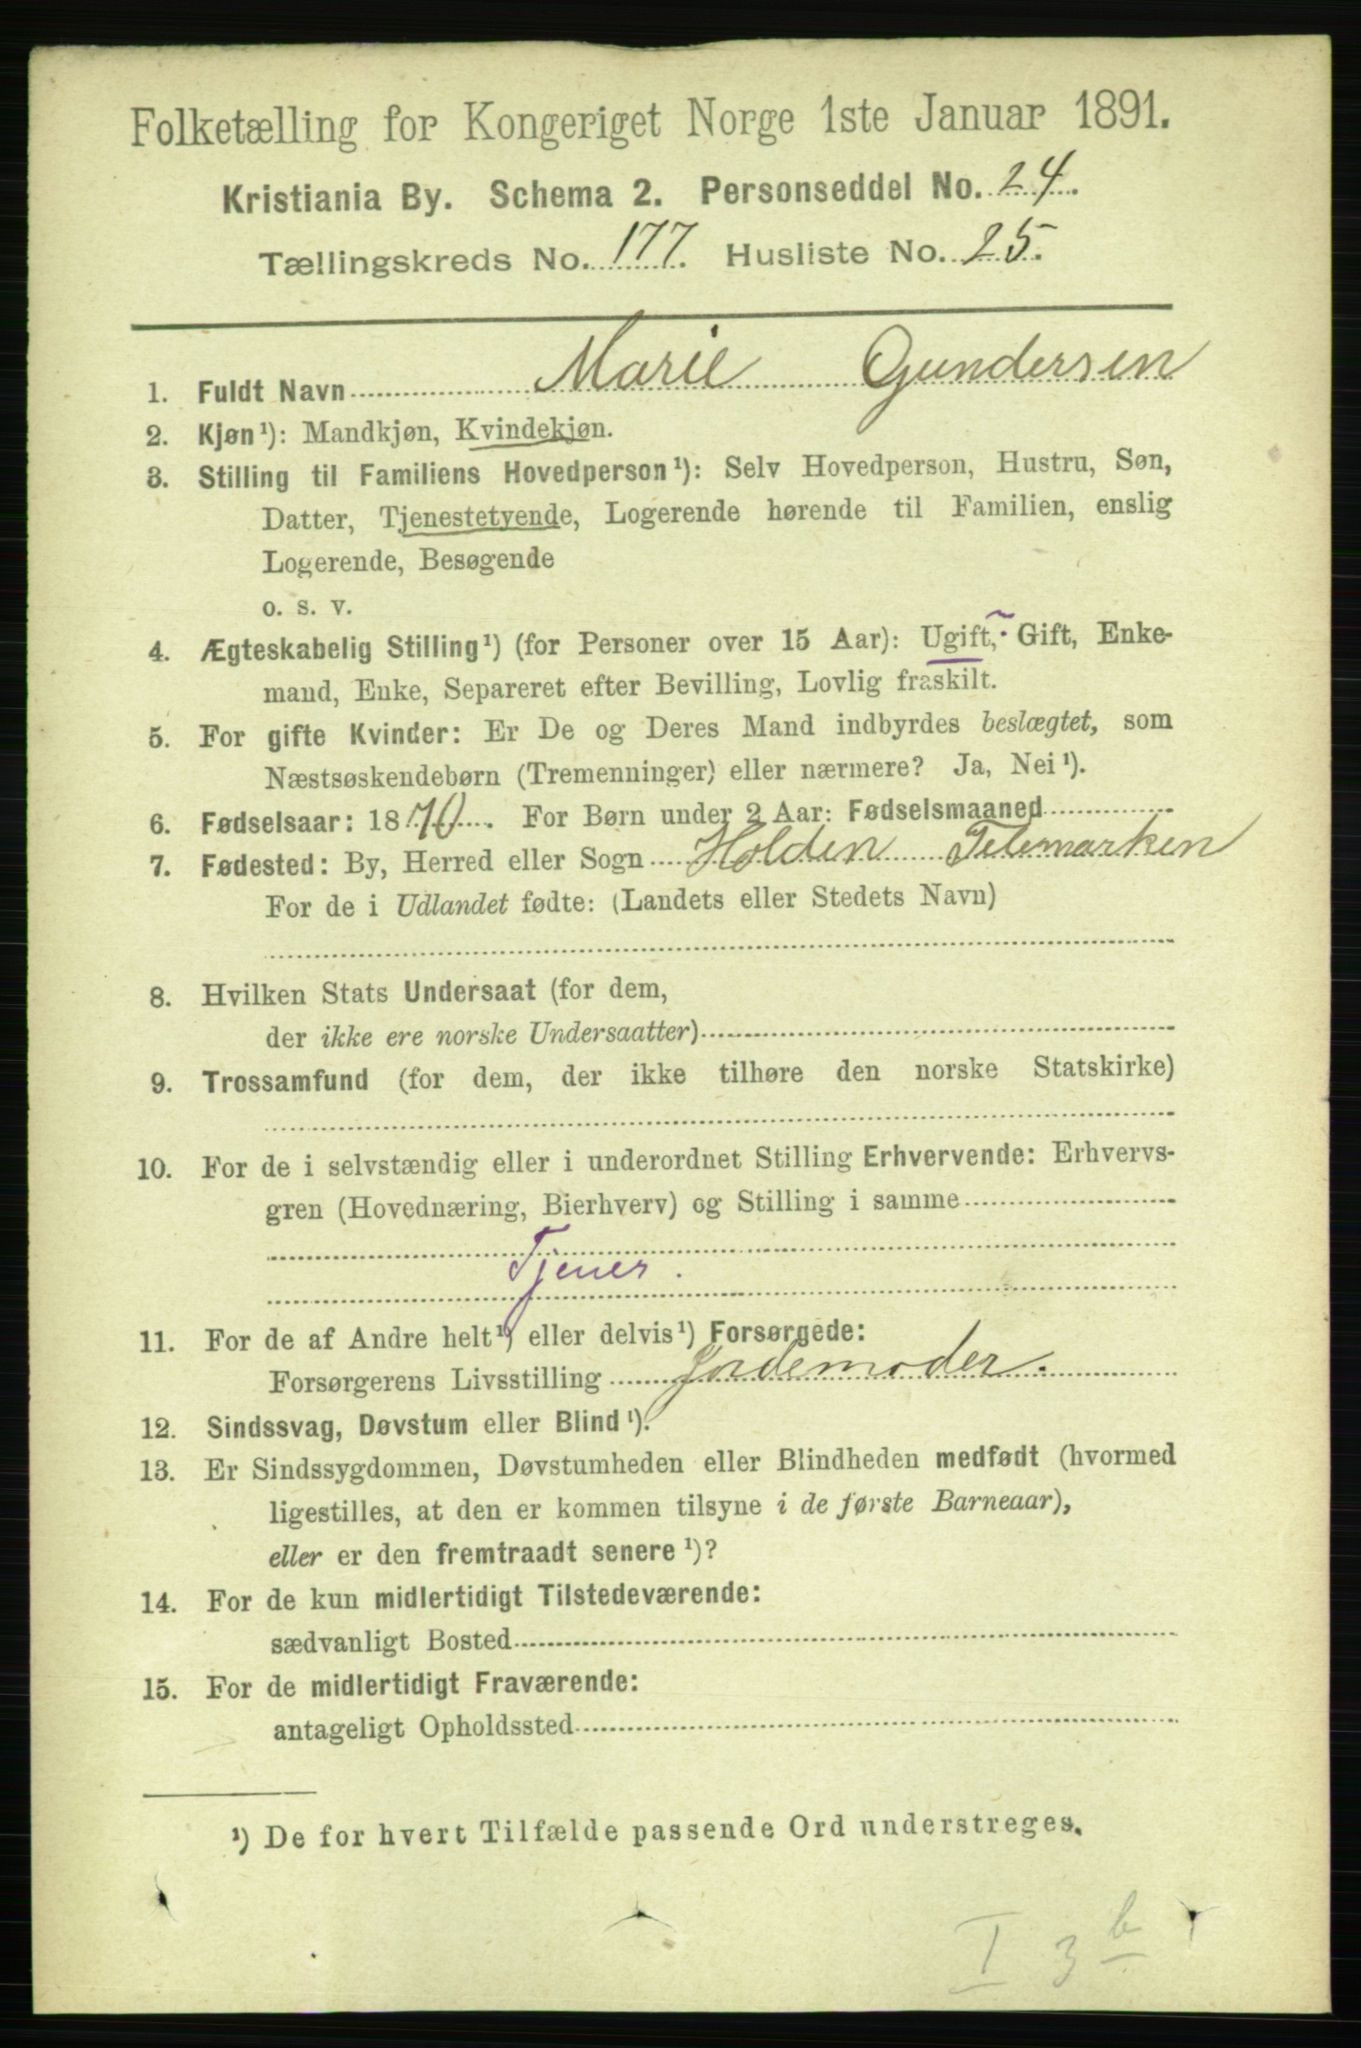 Folketælling for Kongeriget Norge 1ste Januar 1891.
Kristiania By. Schema 2. Personseddel No. 24.
Tællingskreds No. 177. Husliste No. 25.
1. Fuldt Navn Marie Gundersen
2. Kjøn¹): Mandkjøn, Kvindekjøn.
3. Stilling til Familiens Hovedperson¹): Selv Hovedperson, Hustru, Søn,
Datter, Tjenestetyende, Logerende hørende til Familien, enslig
Logerende, Besøgende
o. s. v.
4. Ægteskabelig Stilling¹) (for Personer over 15 Aar): Ugift, Gift, Enke-
mand, Enke, Separeret efter Bevilling, Lovlig fraskilt.
5. For gifte Kvinder: Er De og Deres Mand indbyrdes beslægtet, som
Næstsøskendebørn (Tremenninger) eller nærmere? Ja, Nei¹).
6. Fødselsaar: 1870. For Børn under 2 Aar: Fødselsmaaned
7. Fødested: By, Herred eller Sogn Holden Telemarken
For de i Udlandet fødte: (Landets eller Stedets Navn)
8. Hvilken Stats Undersaat (for dem,
der ikke ere norske Undersaatter)
9. Trossamfund (for dem, der ikke tilhøre den norske Statskirke)
10. For de i selvstændig eller i underordnet Stilling Erhvervende: Erhvervs-
gren (Hovednæring, Bierhverv) og Stilling i samme
Tjener.
11. For de af Andre helt¹) eller delvis¹) Forsørgede:
Forsørgerens Livsstilling Jordemoder.
12. Sindssvag, Døvstum eller Blind¹).
13. Er Sindssygdommen, Døvstumheden eller Blindheden medfødt (hvormed
ligestilles, at den er kommen tilsyne i de første Barneaar),
eller er den fremtraadt senere¹)?
14. For de kun midlertidigt Tilstedeværende:
sædvanligt Bosted
15. For de midlertidigt Fraværende:
antageligt Opholdssted
¹) De for hvert Tilfælde passende Ord understreges.
I 3 b